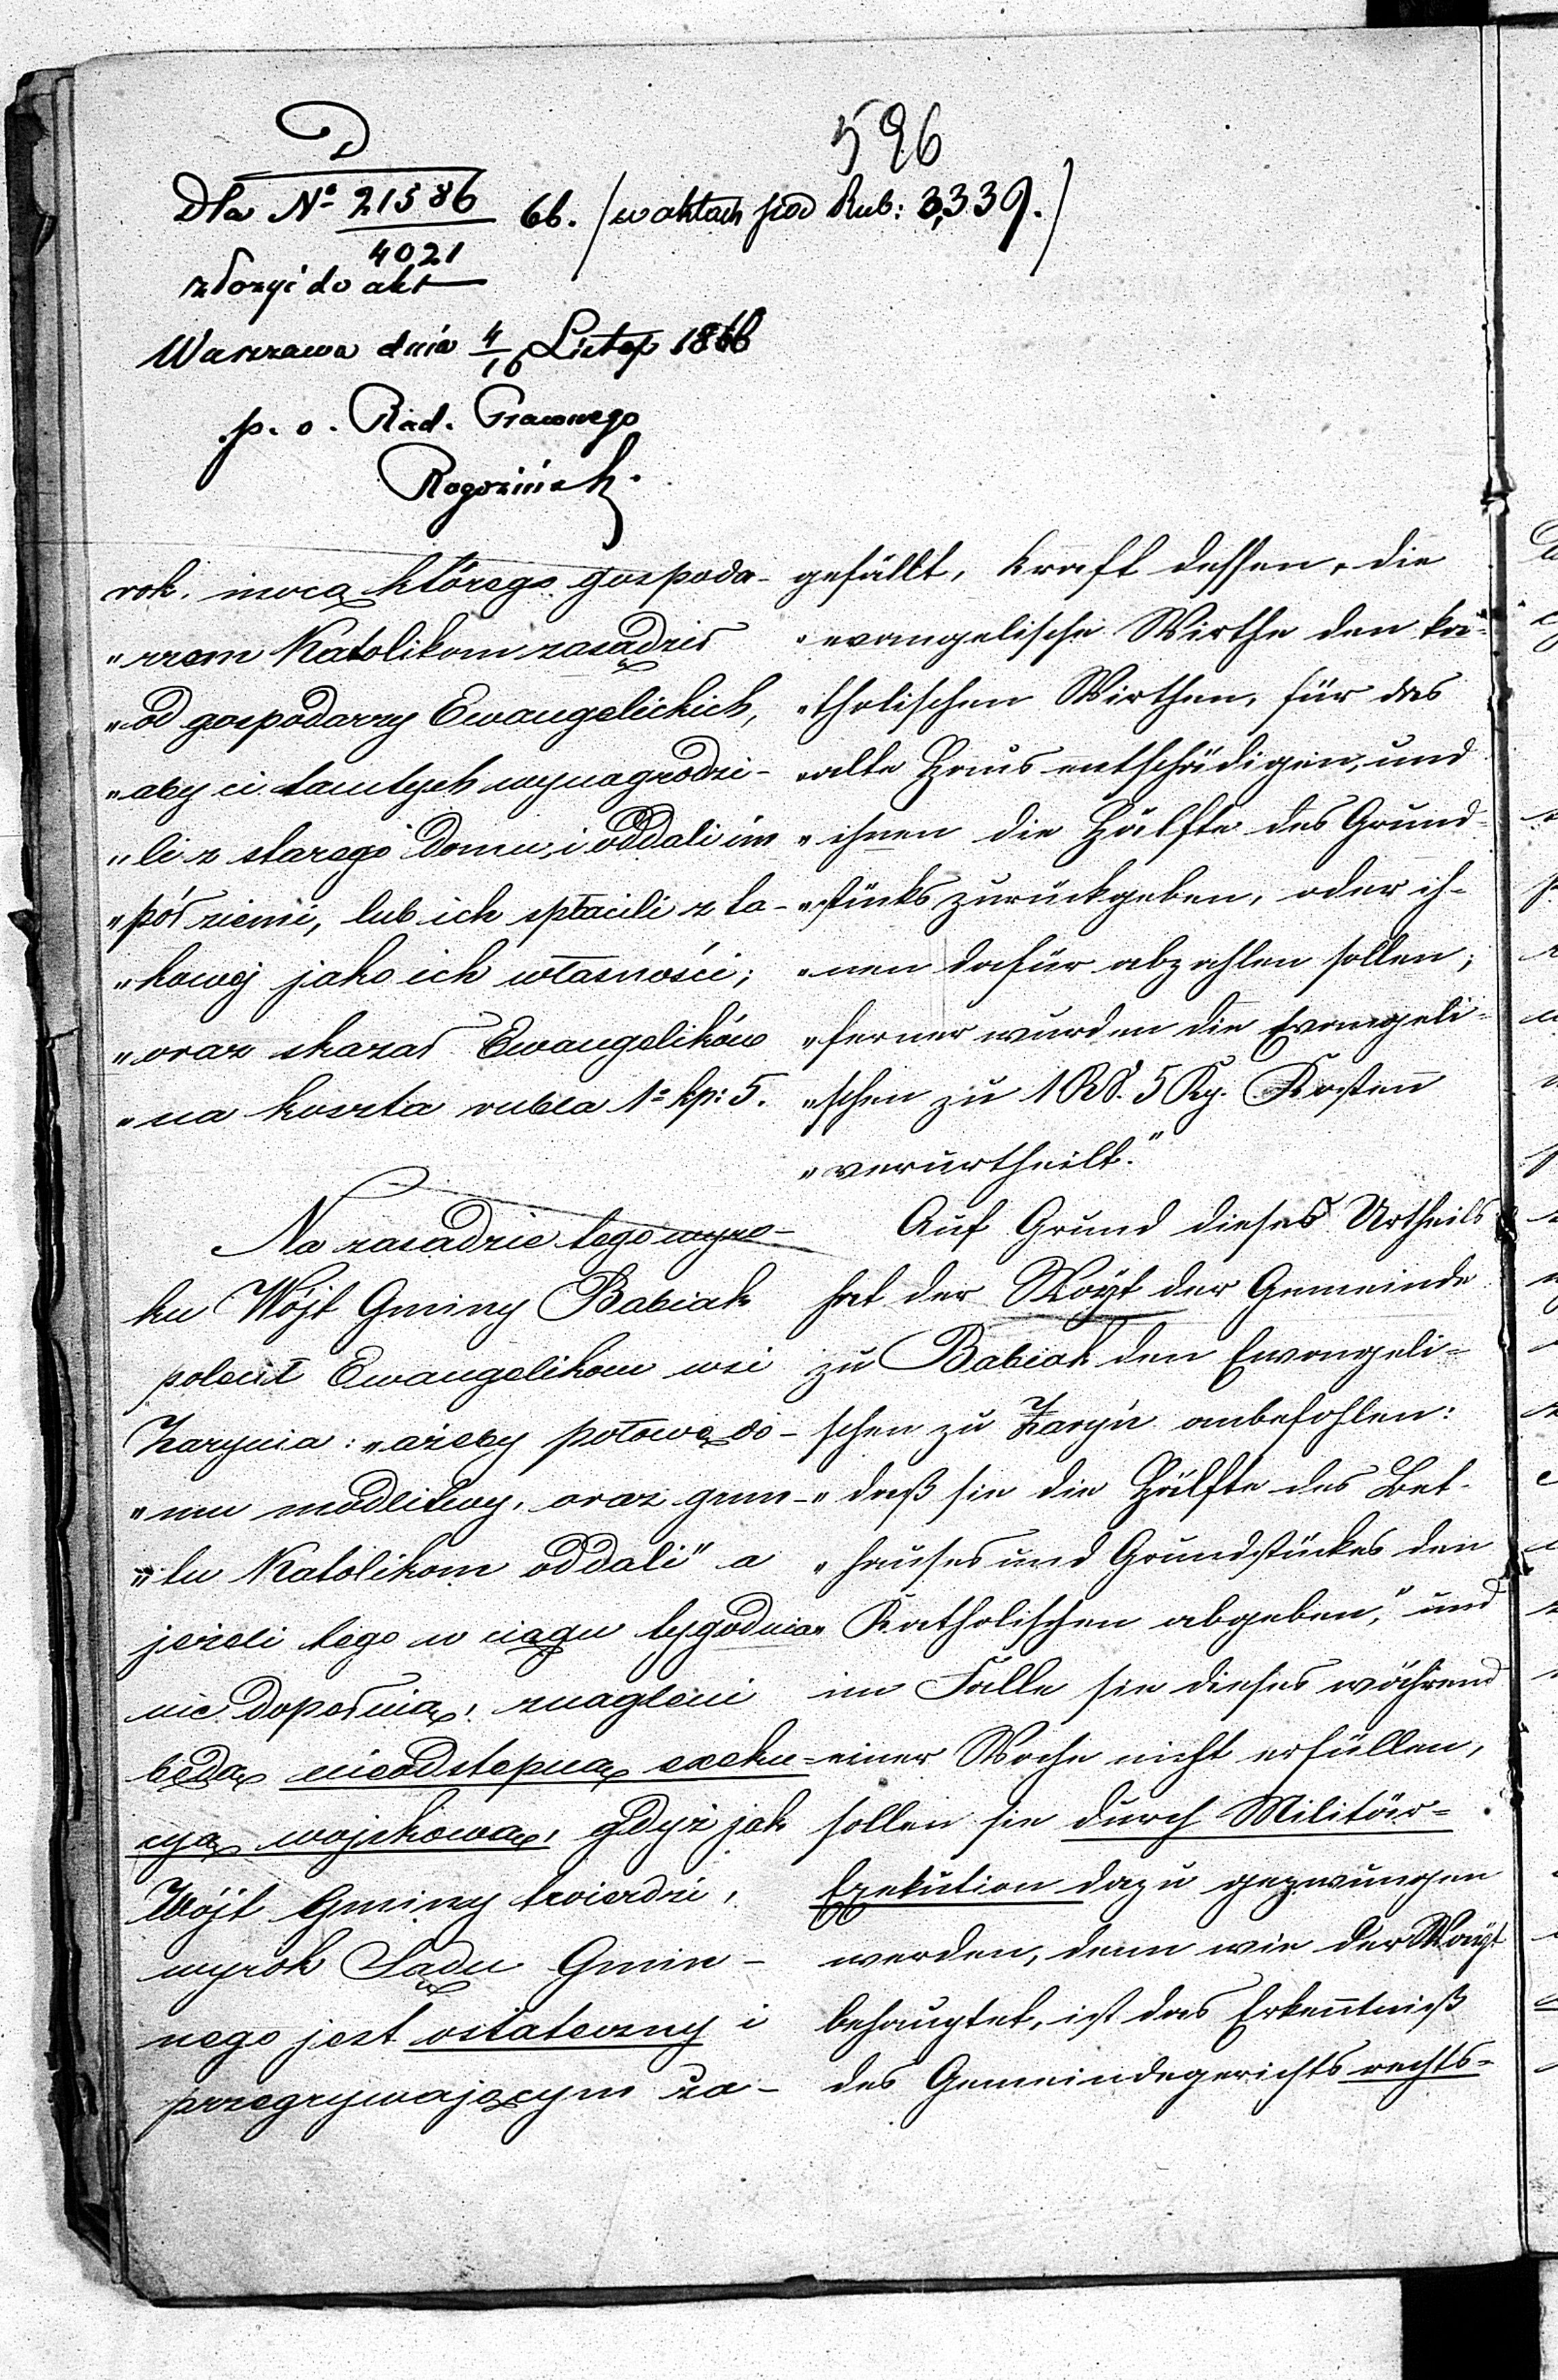 D
596
Dla № 21586/4021 66. /w aktach pod Rub: 3,339./
złożyć do akt
Warszawa dnia 4/16 Listop 1866
p. o. Rad. Prawnego
rok, mocą którego gospoda-
„rzom Katolikom zasądził
„od gospodarzy Ewangelickich,
„aby ci tamtych wynagrodzi-
„li z starego domu, i oddali im
„pół ziemi, lub ich spłacili z ta-
„kowej jako ich własności;
„oraz skazał Ewangelików
„na koszta rubla 1 kp: 5.
Na zasadzie tego wyro-
ku Wójt Gminy Babiak
polecił Ewangelikom wsi
Zarynia: „ażeby połowę do-
„mu modlitwy, oraz grun-
„tu Katolikom oddali" a
jeżeli tego w ciągu tygodnia
nie dopełnią, znagleni
będą nieodstępną exeku-
cyą wojskową, gdyż jak
Wójt Gminy twierdzi,
wyrok Sądu Gmin-
nego jest ostateczny i
przegrywającym za-
gefällt, kraft dessen, die
„evangelische Wirthe den ka-
„tholischen Wirthen, für das
„alte Haus entschädigen, und
„ihnen die Hälfte des Grund-
„stücks zurückgeben, oder ih-
„nen dafür abzahlen sollen;
„ferner wurden die Evangeli-
„schen zu 1 RS. 5 Kp. Kosten
„verurtheilt."
Auf Grund dieses Urtheils
hat der Woyt der Gemeinde
zu Babiak den Evangeli-
schen zu Zaryń anbefohlen:
„daß sie die Hälfte des Bet-
„hauses und Grundstückes den
„Katholischen abgeben," und
im Falle sie dieses während
einer Woche nicht erfüllen,
sollen sie durch Militär-
Exekution dazu gezwungen
werden, denn wie der Woyt
behauptet, ist das Erkenntniß
des Gemeindegerichts rechts-